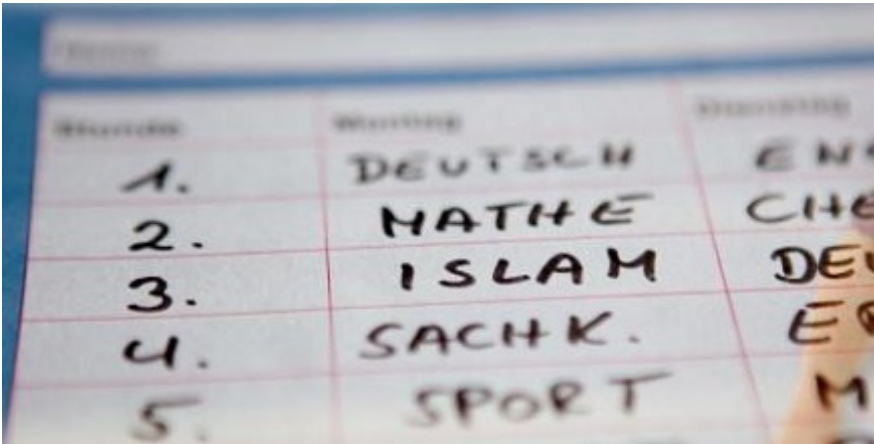 Stunde Montag Dienstag
1. DEUTSCH EN
2. MATHE CHE
3. ISLAM DEU
4. SACHK. E
5. SPORT M